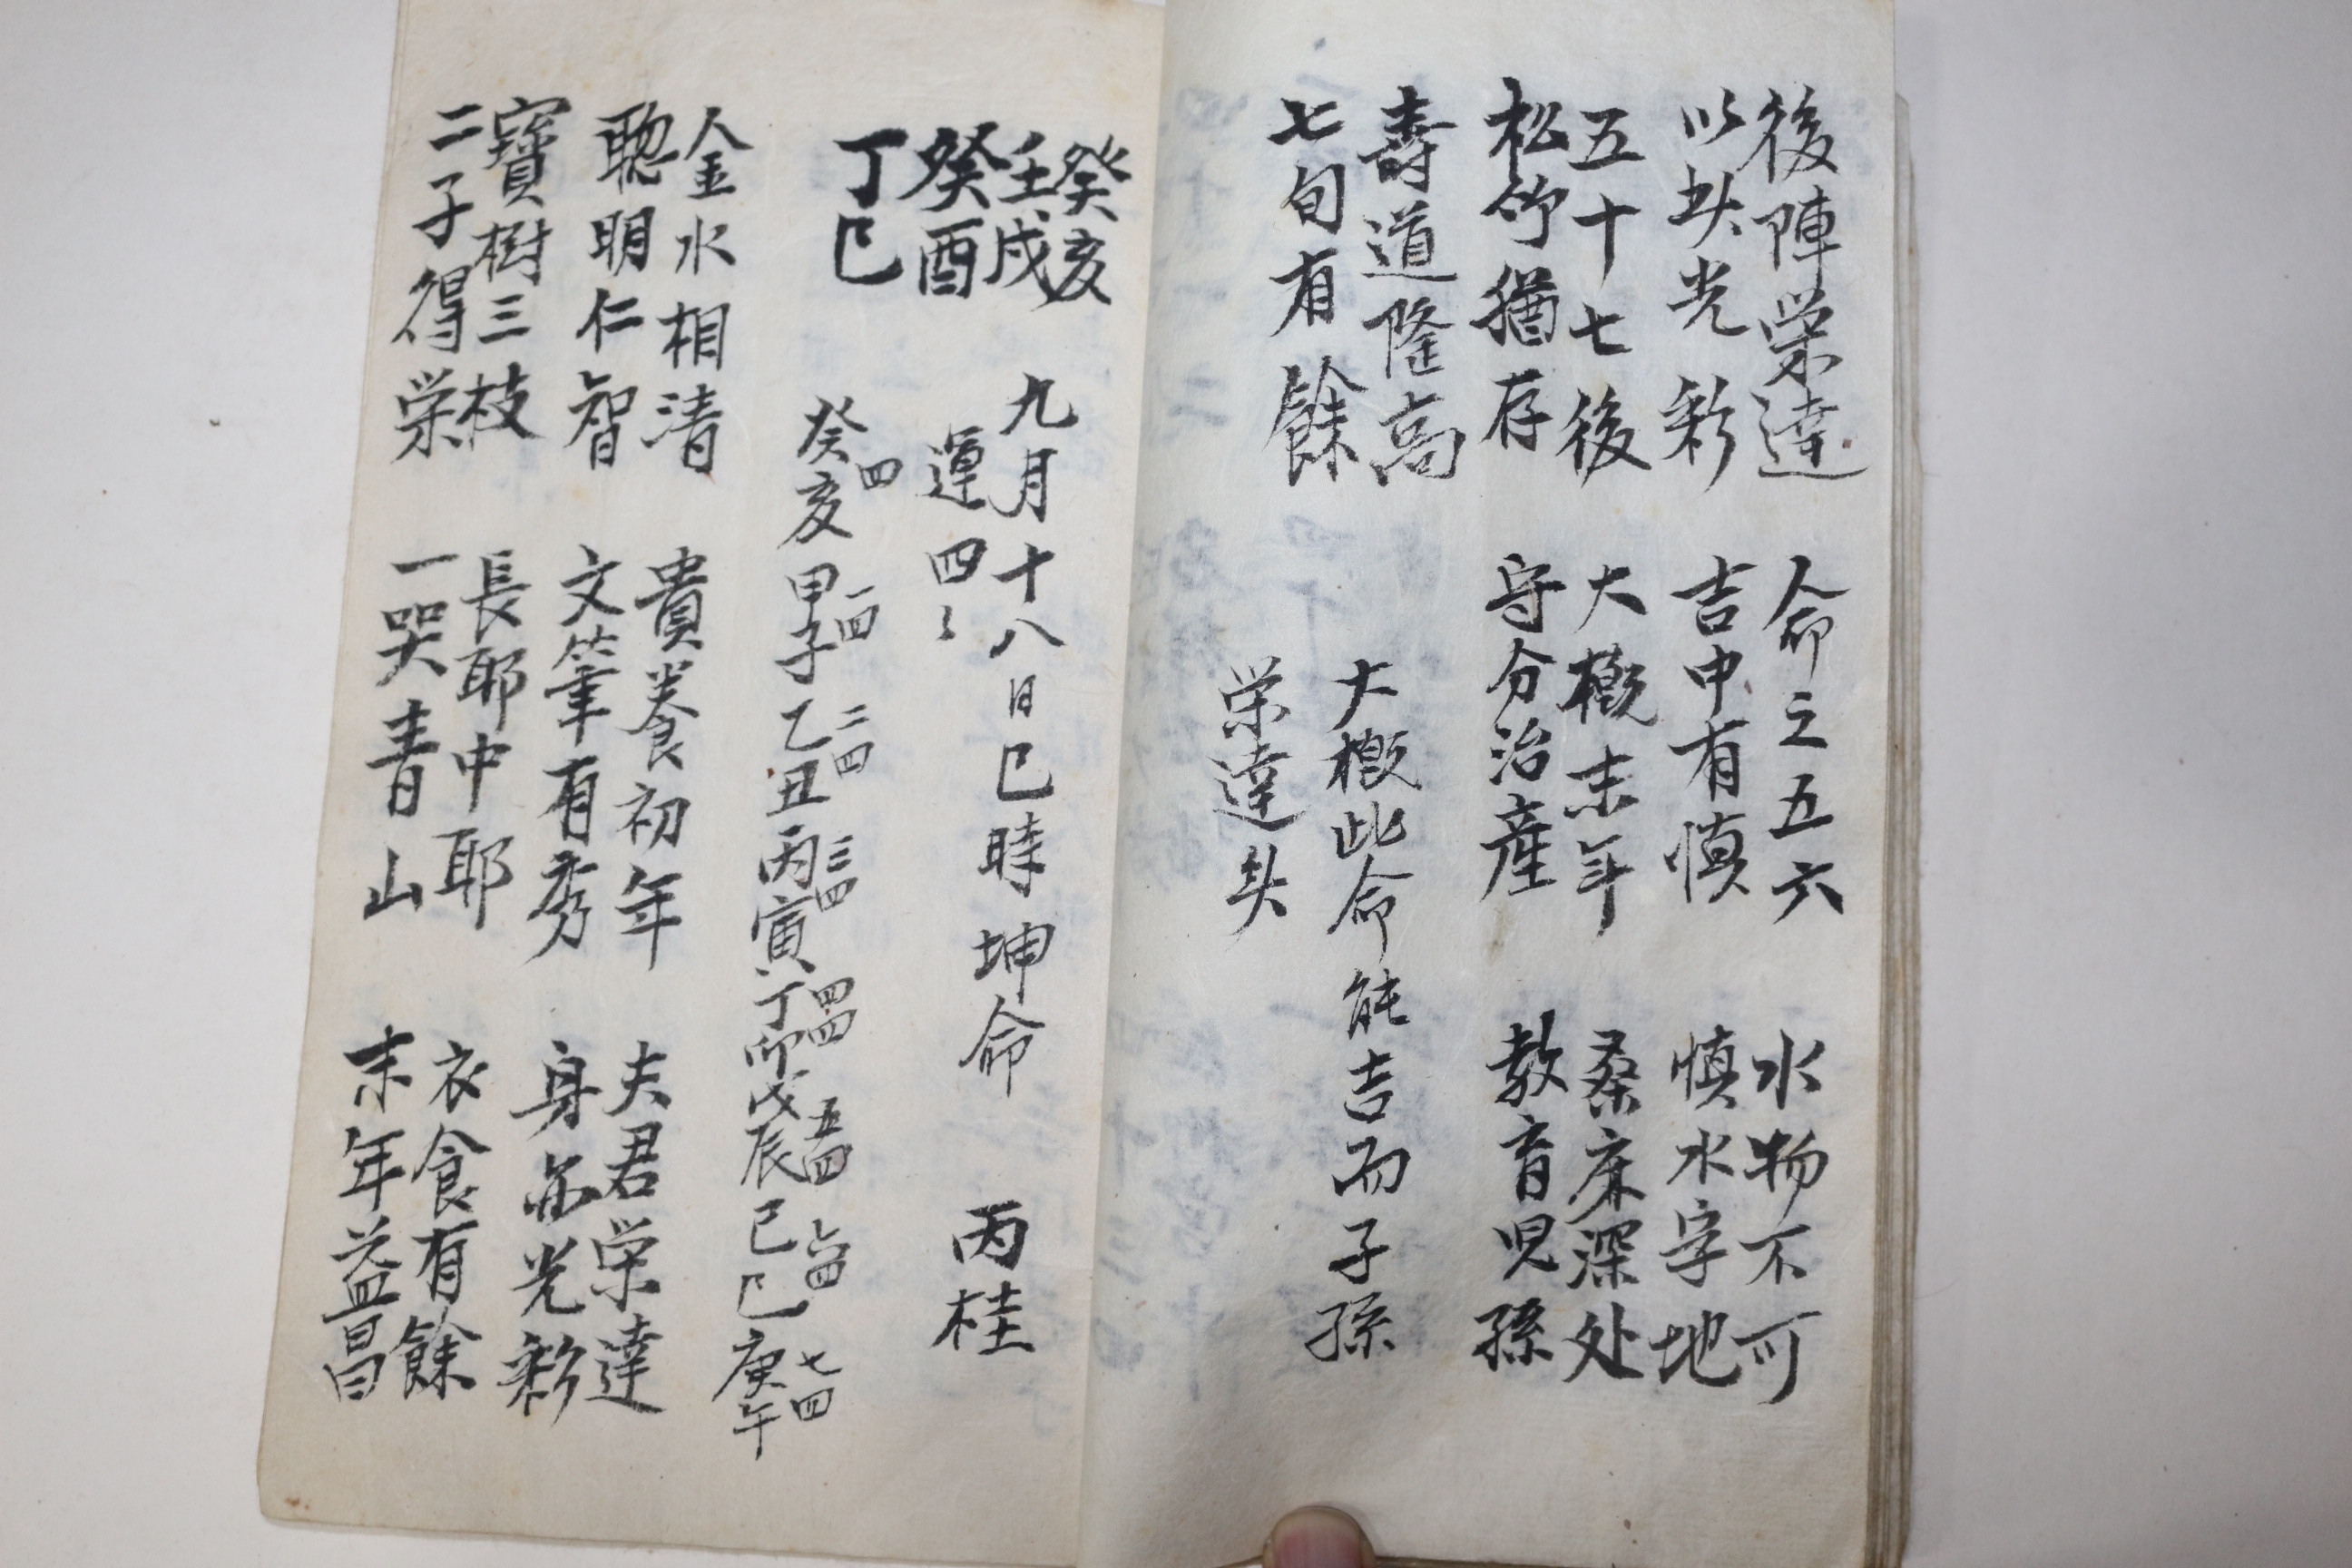 後陣栄達 命之五六 水物不可
以此光彩 吉中有慎 慎水字地
五十七後 大概末年 桑麻深处
松竹猶存 守分治産 教育児孫
壽道隆高
七旬有餘
大概此命能吉而子孫
栄達矣
癸亥
壬戌
癸酉
丁巳
九月十八日巳時坤命 丙桂
運四々
四 一四 二四 三四 四四 五四 六四 七四
癸亥 甲子 乙丑 丙寅 丁卯 戊辰 己巳 庚午
金水相清 貴養初年 夫君栄達
聰明仁智 文筆有秀 身亦光彩
寶樹三枝 長耶中耶 衣食有餘
二子得栄 一哭青山 末年益昌